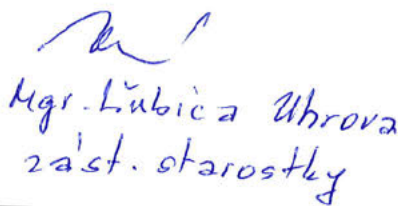 Mgr. Ľubica Uhrova
zást. starostky